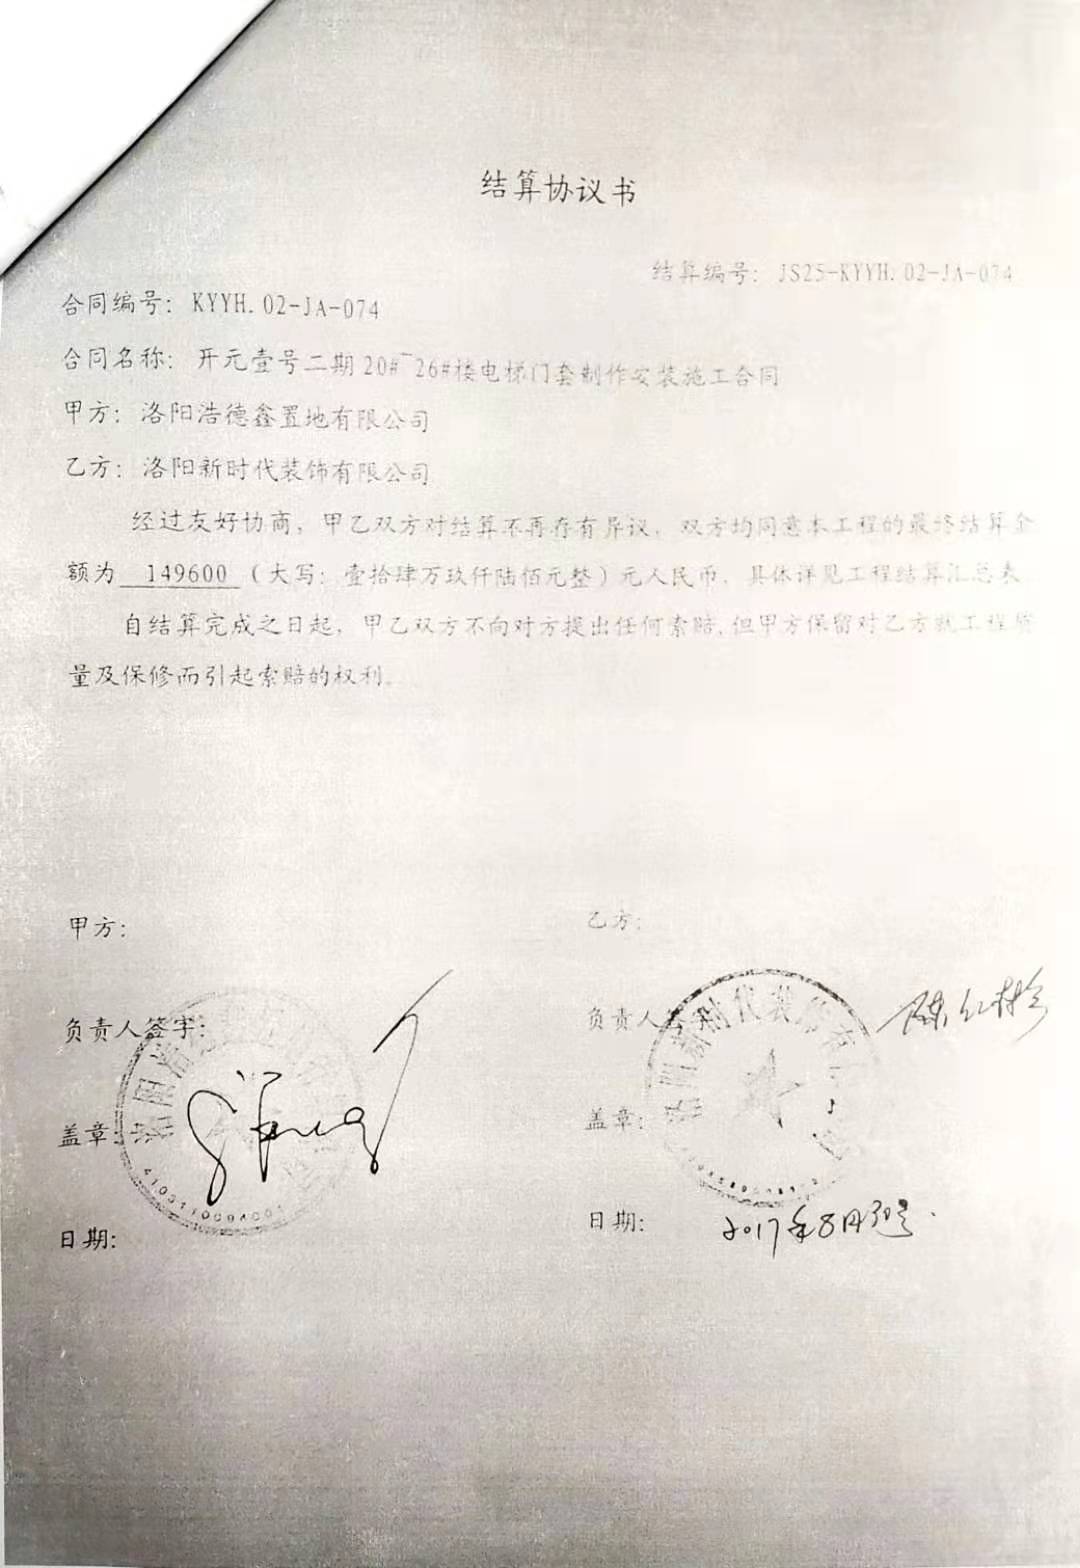 结算协议书
结算编号：JS25-KYYH.02-JA-074
合同编号：KYYH.02-JA-074
合同名称：开元壹号二期20#~26#楼电梯门套制作安装施工合同
甲方：洛阳浩德鑫置地有限公司
乙方：洛阳新时代装饰有限公司
经过友好协商，甲乙双方对结算不再存有异议，双方均同意本工程的最终结算金
额为 149600 （大写：壹拾肆万玖仟陆佰元整）元人民币，具体详见工程结算汇总表
自结算完成之日起，甲乙双方不向对方提出任何索赔,但甲方保留对乙方就工程质
量及保修而引起索赔的权利。
甲方：
乙方：
负责人签字：
负责人
盖章：
盖章：
日期：
日期： 2017年8月30号.